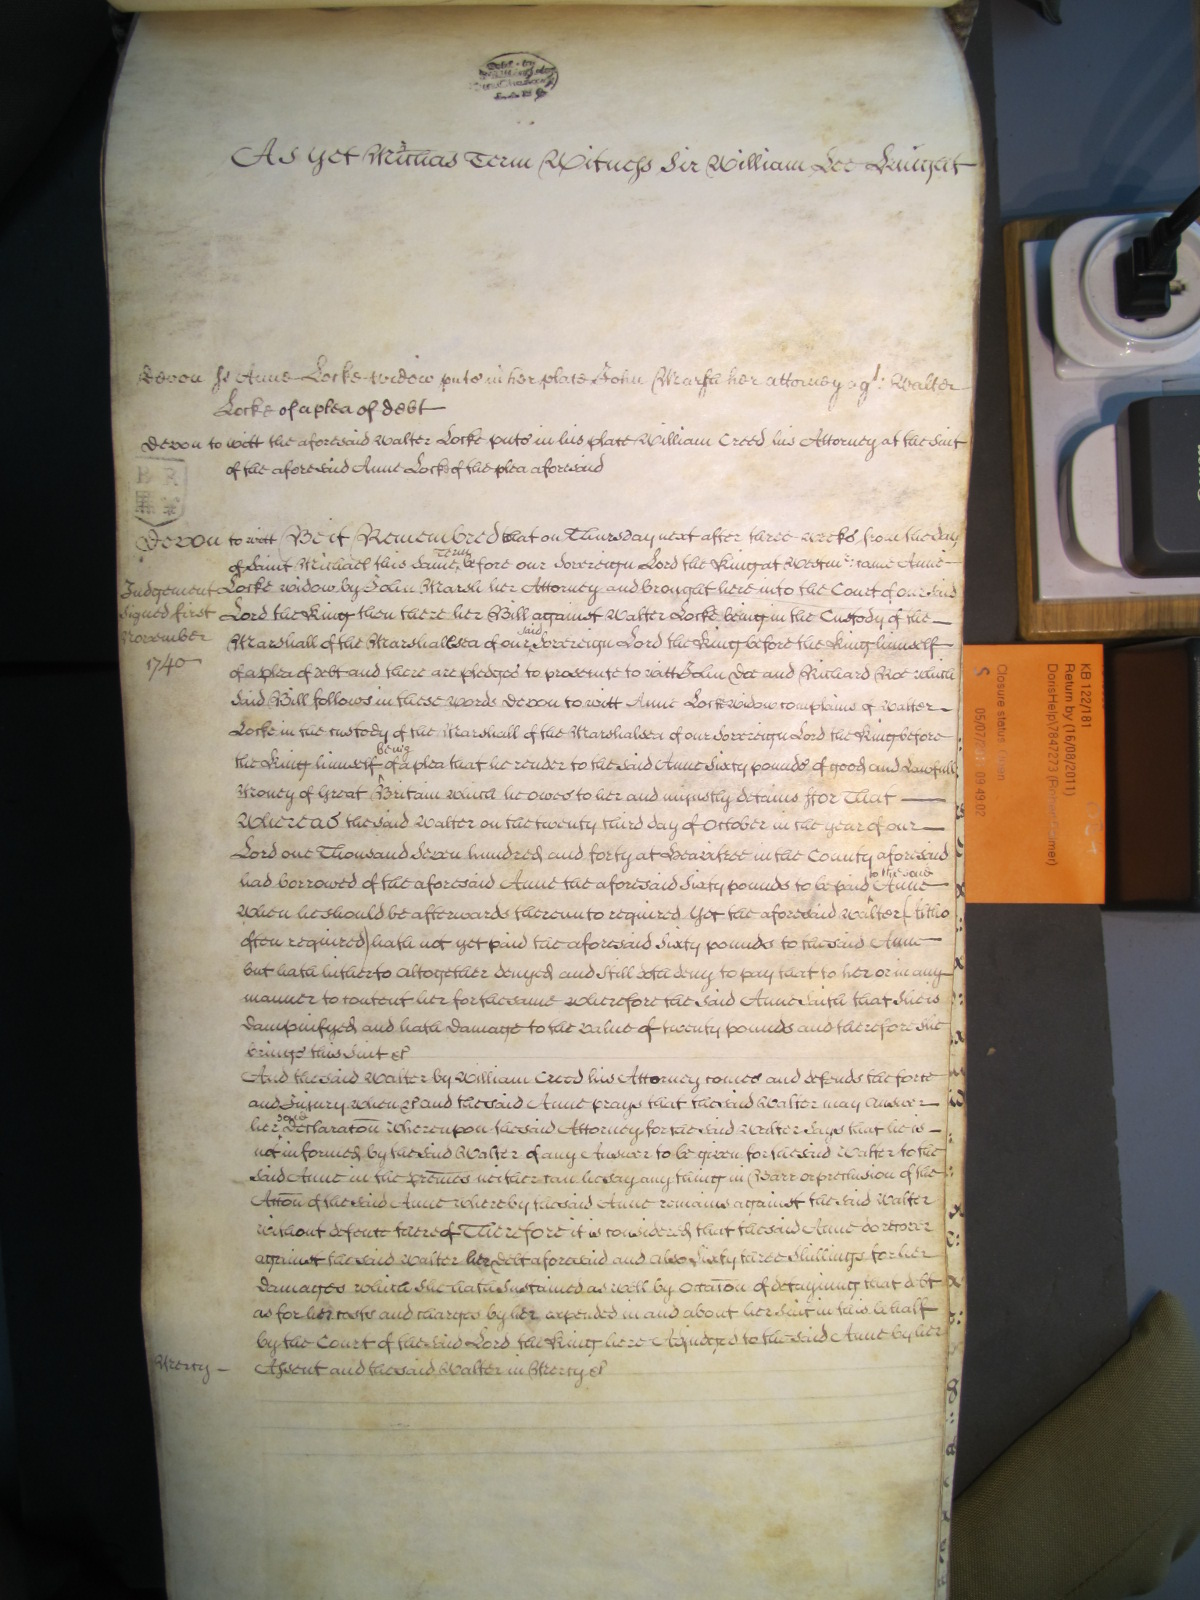 As yet Michās Term Witness Sir William Lee Knight
Devon ss Anne Locke widow puts in her place John Marsh her attorney agt: Walter
Locke of a plea of debt
Devon to witt the aforesaid Walter Locke puts in his place William Creed his Attorney at the Suit
of the aforesaid Anne Locke of the plea aforesaid
Devon to witt Be it Remembred that on Thursday next after three weeks from the day
of Saint Michael this same Term before our Sovereign Lord the King at Westmr: came Anne
Locke widow by John Marsh her Attorney and brought here into the Court of our said
Lord the King then there her Bill against Walter Locke being in the Custody of the
Marshall of the Marshalsea of our said Sovereign Lord the King before the King himself
of a plea of debt and there are pledges to prosecute to witt John Doe and Richard Roe which
said Bill follows in these words Devon to witt Anne Locke widow complains of Walter
Locke in the custody of the Marshall of the Marshalsea of our Sovereign Lord the King before
the King himself being of a plea that he render to the said Anne Sixty pounds of good and Lawfull
Money of Great Britain which he owes to her and unjustly detains ffor That
Whereas the said Walter on the twenty third day of October in the year of our
Lord one Thousand Seven hundred and forty at Heavitree in the County aforesaid
had borrowed of the aforesaid Anne the aforesaid Sixty pounds to be paid to the said Anne
When he should be afterwards thereunto required Yet the aforesaid Walter (altho
often required) hath not yet paid the aforesaid Sixty pounds to the said Anne
but hath hitherto altogether denyed and still doth deny to pay that to her or in any
manner to content her for the same wherefore the said Anne saith that She is
dampnifyed and hath damage to the value of twenty pounds and therefore she
brings this Suit &c
And the said Walter by William Creed his Attorney comes and defends the force
and Injury when &c and the said Anne prays that the said Walter may answer
her said Declaraton Whereupon the said Attorney for the said Walter Says that he is
not informed by the said Walter of any Answer to be given for the said Walter to the
said Anne in the premes neither can he say any thing in Barr or preclusion of the
Actōn of the said Anne whereby the said Anne remains against the said Walter
without defence thereof Therefore it is considered that the said Anne do recover
against the said Walter her debt aforesaid and also Sixty three Shillings for her
Damages which She hath Sustained as well by Occatōn of detayning that debt
as for her costs and charges by her expended in and about her Suit in this behalf
by the Court of the said Lord the King here Adjudged to the said Anne by her
Assent and the said Walter in Mercy &c
Judgement
Signed first
November
1740
Mercy
KB 122/181
Return by (16/08/2011)
Closure status